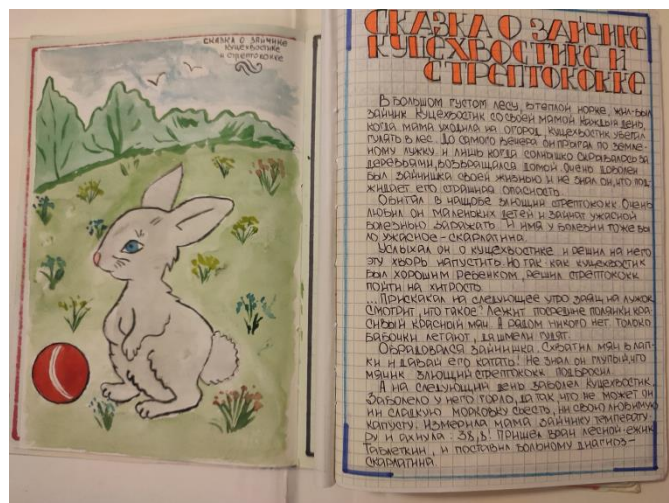 СКАЗКА О ЗАЙЧИКЕ
КУЦЕХВОСТИКЕ
И СТРЕПТОКОККЕ
СКАЗКА О ЗАЙЧИКЕ
КУЦЕХВОСТИКЕ И
СТРЕПТОКОККЕ
В большом густом лесу, в теплой норке, жил-был
зайчик Куцехвостик со своей мамой. Каждый день,
когда мама уходила на огород, Куцехвостик убегал
гулять в лес. До самого вечера он прыгал по зелё-
ному лужку. И лишь когда солнышко скрывалось за
деревьями, возвращался домой. Очень доволен
был зайчишка своей жизнью и не знал он, что под-
жидает его страшная опасность.
Обитал в чащобе злющий стрептококк. Очень
любил он маленьких детей и зайчат ужасной
болезнью заражать. И имя у болезни тоже бы-
ло ужасное - скарлатина.
Услыхал он о Куцехвостике и решил на него
эту хворь напустить. Но так как Куцехвостик
был хорошим ребенком, решил стрептококк
пойти на хитрость.
...Прискакал на следующее утро заяц на лужок,
смотрит, что такое? Лежит посредине полянки кра-
сивый красный мяч. А рядом никого нет. Только
бабочки летают, да шмели гудят.
Обрадовался зайчишка. Схватил мяч в лап-
ки и давай его катать! Не знал он, глупый, что
мячик злющий стрептококк подбросил.
А на следующий день заболел Куцехвостик.
Заболело у него горло, да так, что не может он
ни сладкую морковку съесть, ни свою любимую
капусту. Измерила мама зайчику температу-
ру и ахнула: 38,8! Пришел врач лесной - ежик
Таблеткин, и поставил больному диагноз -
скарлатина.